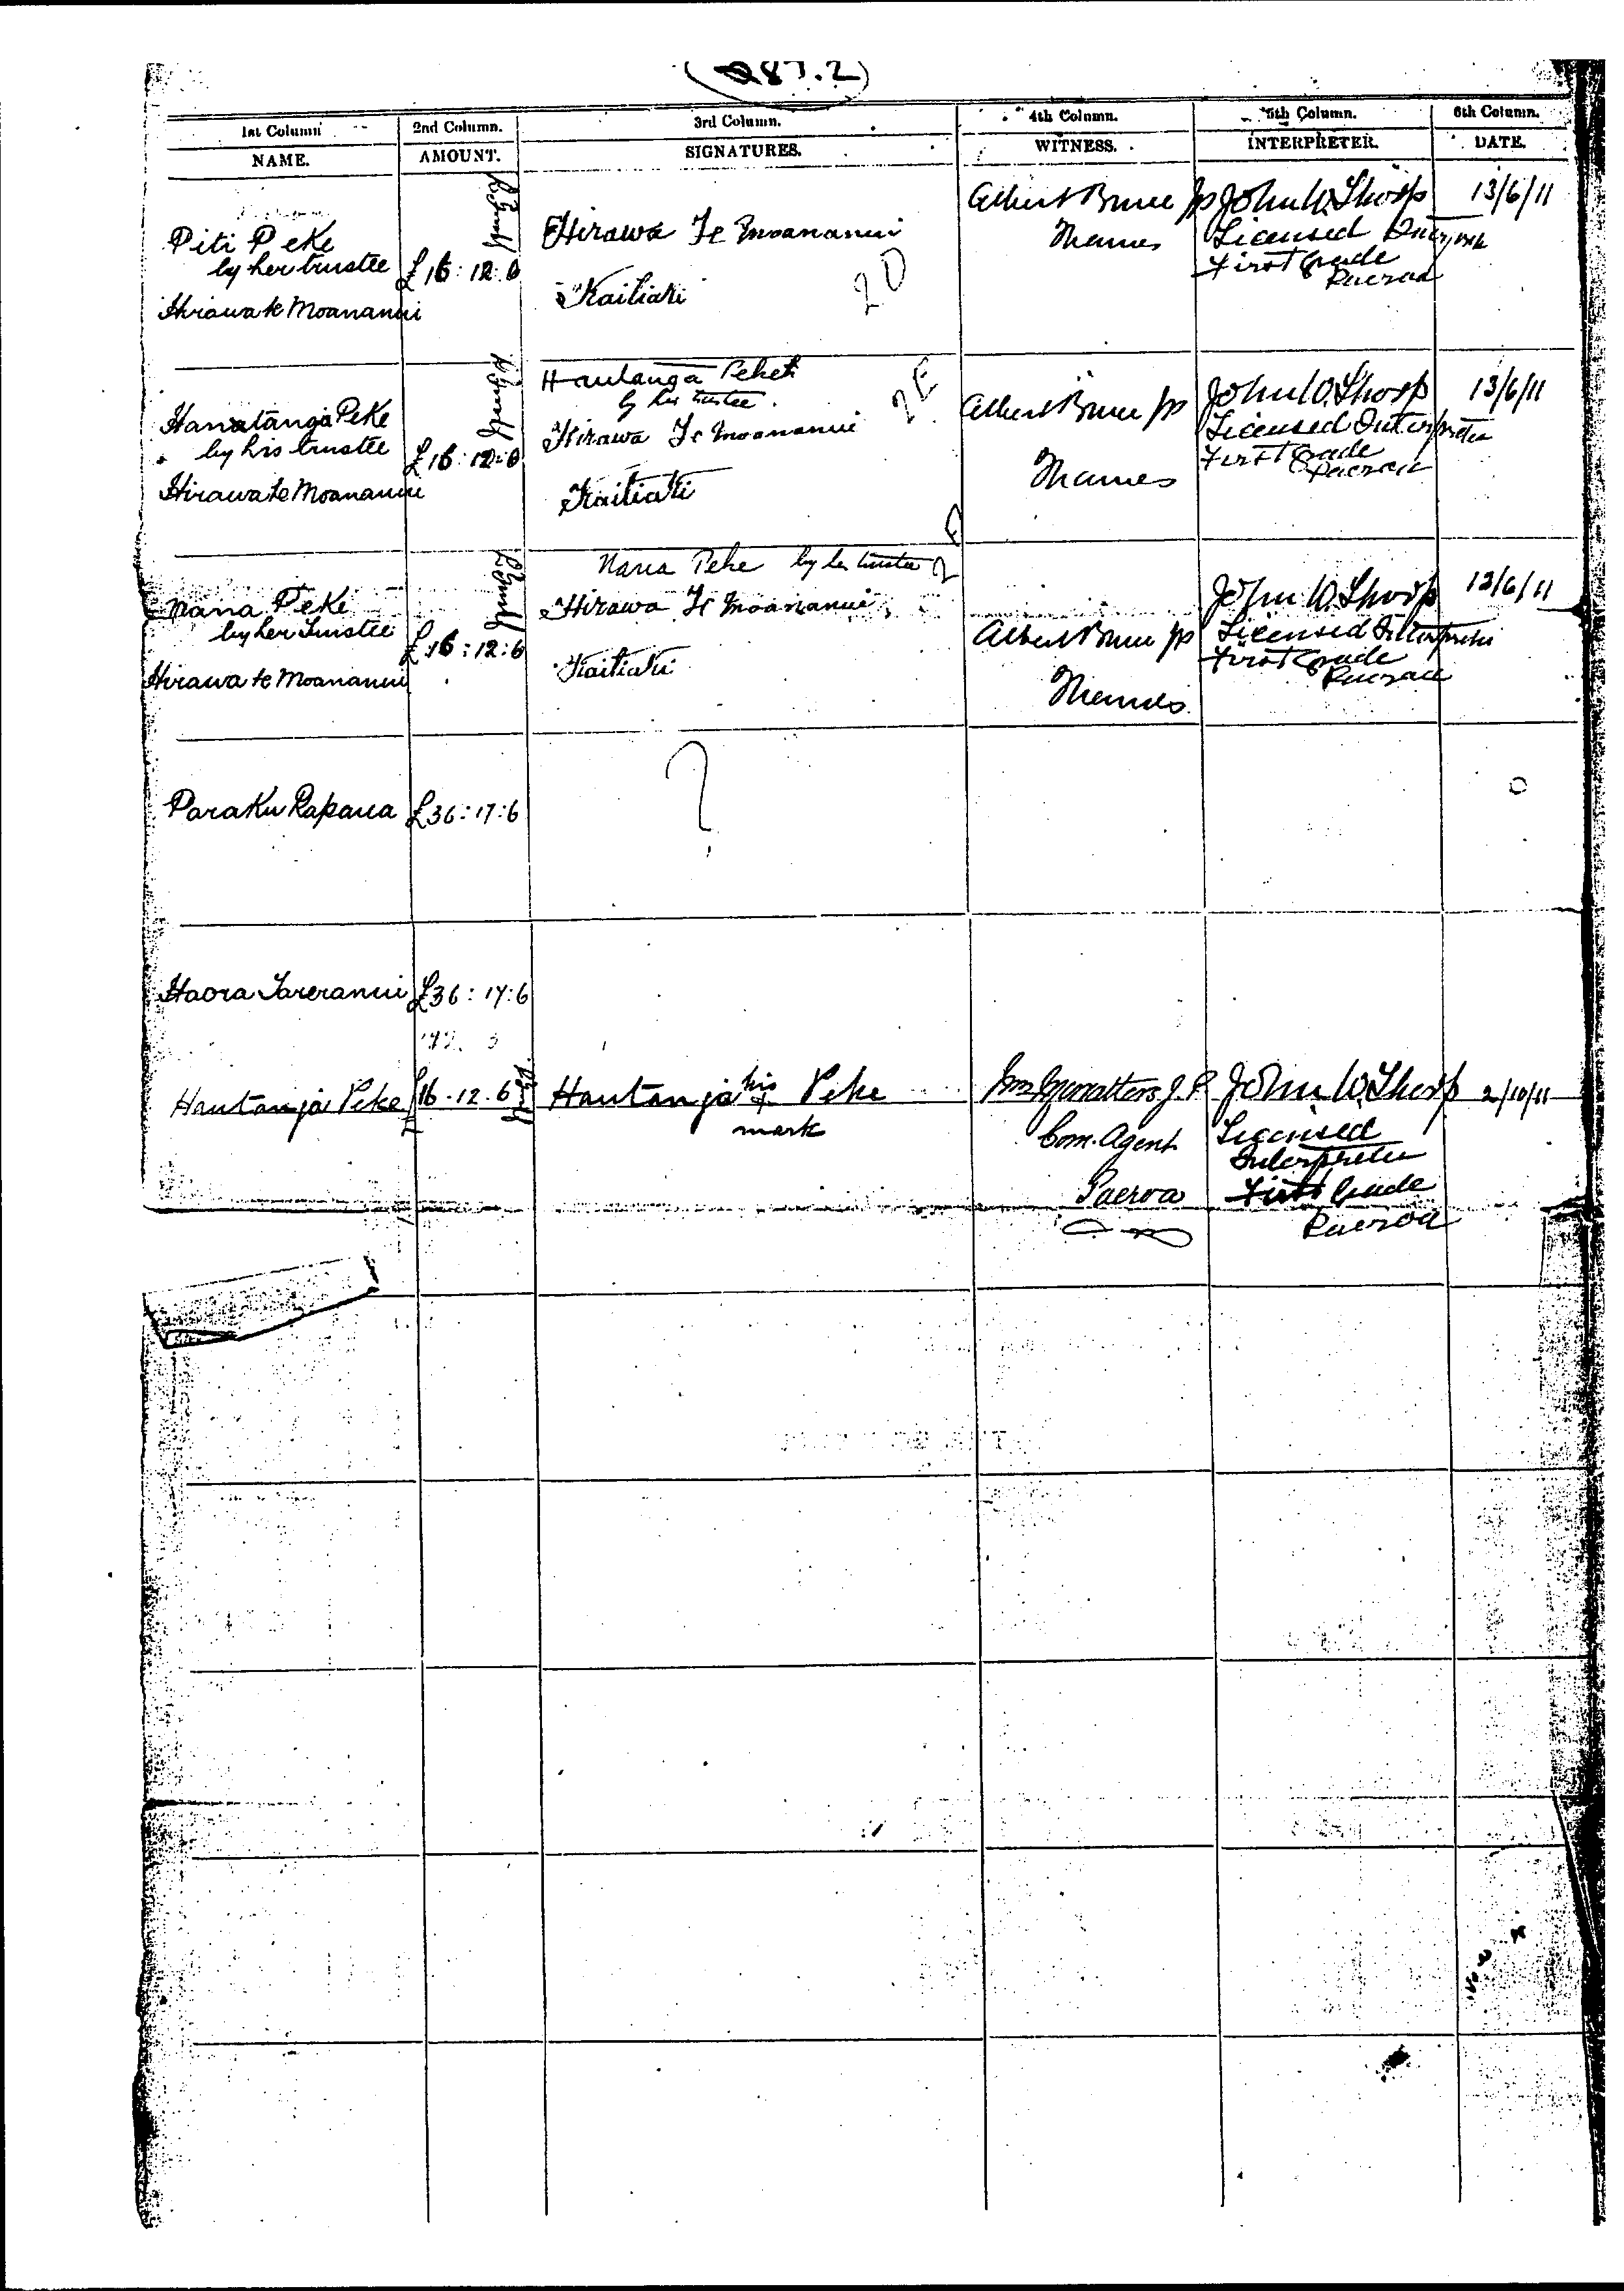 (287.2)
1st Column 2nd Column. 3rd Column. 4th Column. 5th Column. 6th Column.
NAME. AMOUNT. SIGNATURES. WITNESS. INTERPRETER. DATE.
Piti Peke
by her trustee
Hirawa te Moananui
£16:12:6
Hirawa Te Moananui
Kaitiaki
20
Albert Bruce JP
Thames
John W. Thorp
Licensed
First Grade
Paeroa
13/6/11
Hanatanga Peke
by his trustee
Hirawa te Moananui
£16:12:6
Hautanga Peke
by his trustee.
Hirawa Te Moananui
Kaitiaki
Albert Bruce JP
Thames
John W. Thorp
Licensed Interpreter
First Grade
Paeroa
13/6/11
Nana Peke
by her Trustee
Hirawa te Moananui
£16:12:6
Nana Peke by her trustee
Hirawa Te Moananui
Kaitiaki
Albert Bruce JP
Thames
John W. Thorp
Licensed Interpreter
First Grade
Paeroa
13/6/11
Paraku Rapana £36:17:6
?
Haora Tareranui £36:17:6
Hautanja Peke £16.12.6 Hautanja his x Peke
mark
J.P.
Com. Agent
Paeroa
John W. Thorp
Licensed
Interpreter
First Grade
Paeroa
2/10/11